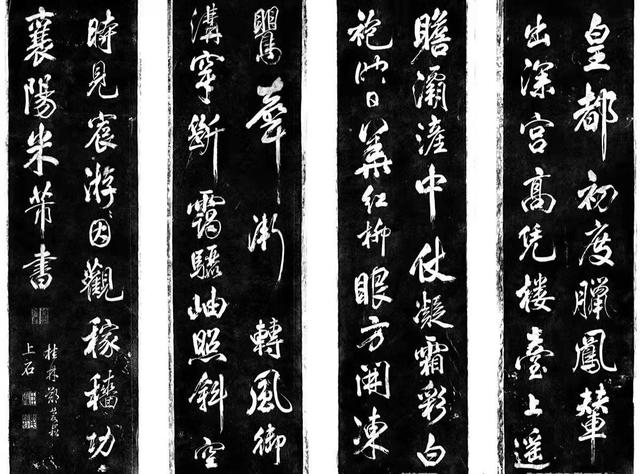 皇都初度臘鳳輦
出深宮高凭樓臺上遥
瞻灞滻中仗凝霜彩白
袍映日華紅柳眼方開凍
鶯聲漸轉風御
溝穿斷靄驪岫照斜空
時見宸游因觀稼穡功
襄陽米芾書
桂林鄭
上石